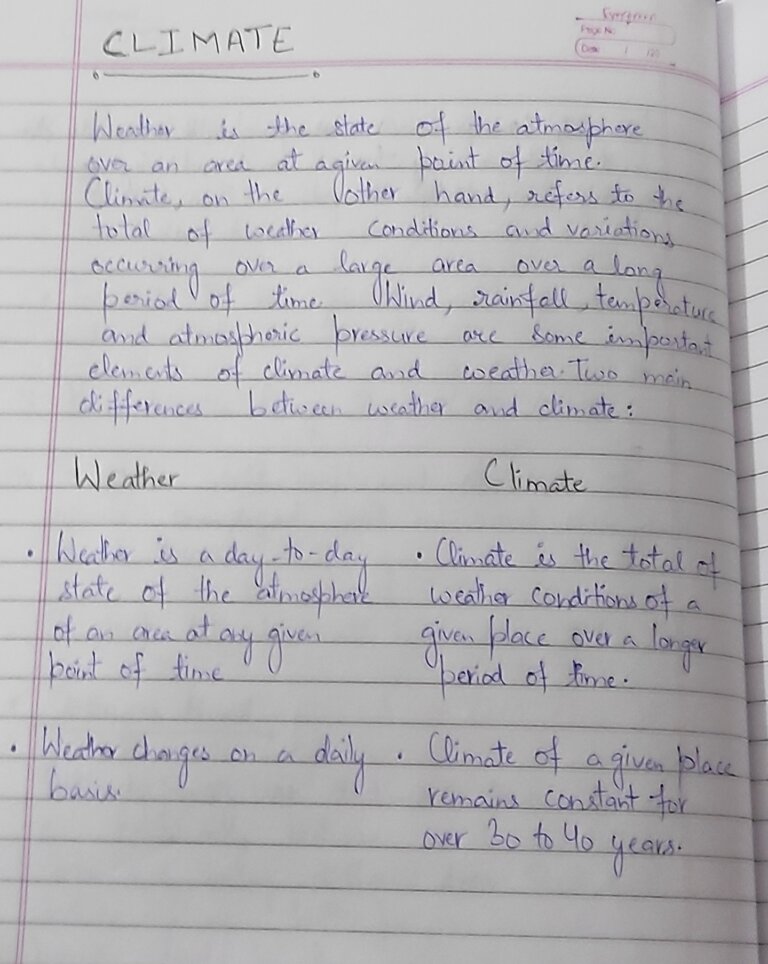 Evergreen
Page No.
Date: / /20
CLIMATE
Weather is the state of the atmosphere
over an area at a given point of time.
Climate, on the other hand, refers to the
total of weather conditions and variations
occurring over a large area over a long
period of time. Wind, rainfall, temperature
and atmospheric pressure are some important
elements of climate and weather. Two main
differences between weather and climate:
Weather Climate
• Weather is a day-to-day
state of the atmosphere
of an area at any given
point of time
• Climate is the total of
weather conditions of a
given place over a longer
period of time.
• Weather changes on a daily
basis.
• Climate of a given place
remains constant for
over 30 to 40 years.